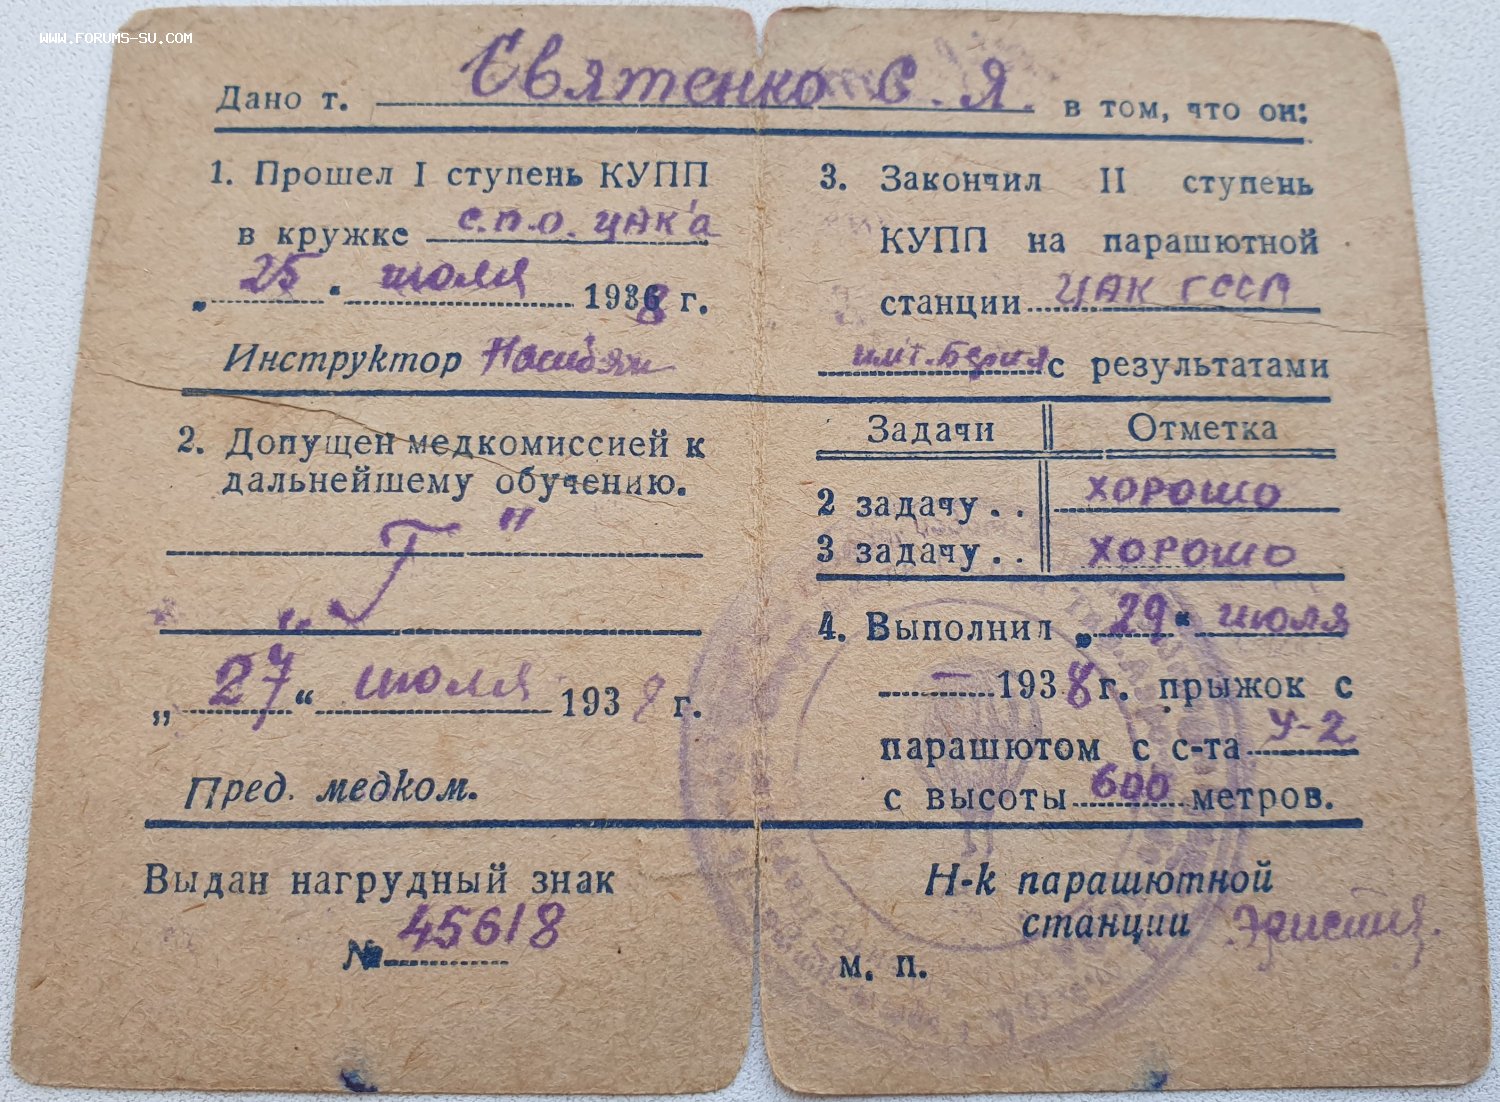 WWW.FORUMS-SU.COM
Дано т. Святенко С. Я. в том, что он:
1. Прошел I ступень КУПП
в кружке С.П.О. ЦАК'а
„25“ июля 1938 г.
Инструктор
2. Допущен медкомиссией к
дальнейшему обучению.
„Г"
„27“ июля 1938 г.
Пред. медком.
Выдан нагрудный знак
№ 45618
3. Закончил II ступень
КУПП на парашютной
станции ЦАК ГССР
им т. Берия с результатами
Задачи Отметка
2 задачу . . хорошо
3 задачу . . хорошо
4. Выполнил „29“ июля
— 1938 г. прыжок с
парашютом с с-та У-2
с высоты 600 метров.
Н-к парашютной
станции
м. п.